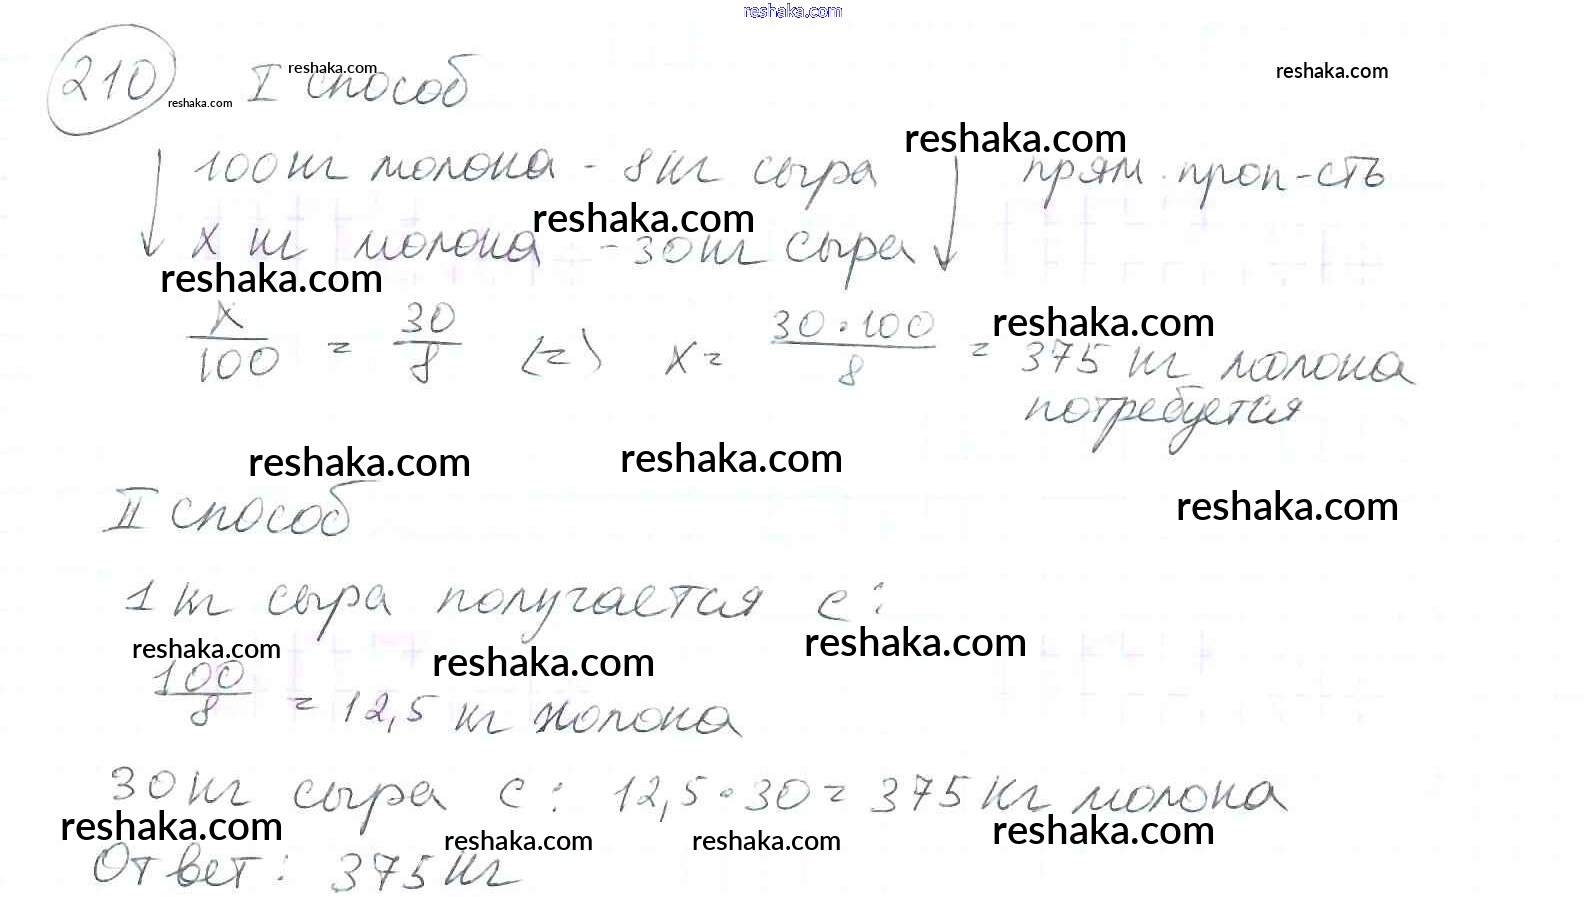 reshaka.com
210 I способ
reshaka.com
reshaka.com
reshaka.com
reshaka.com
100 кг молока - 8 кг сыра прям. проп-сть
reshaka.com
x кг молока - 30 кг сыра
reshaka.com
x/100 = 30/8 (=) x = 30·100/8 = 375 кг молока
reshaka.com
потребуется
reshaka.com reshaka.com
reshaka.com
II способ
1 кг сыра получается с:
reshaka.com reshaka.com reshaka.com
100/8 = 12,5 кг молока
30 кг сыра с: 12,5·30 = 375 кг молока
reshaka.com reshaka.com reshaka.com reshaka.com
Ответ: 375 кг